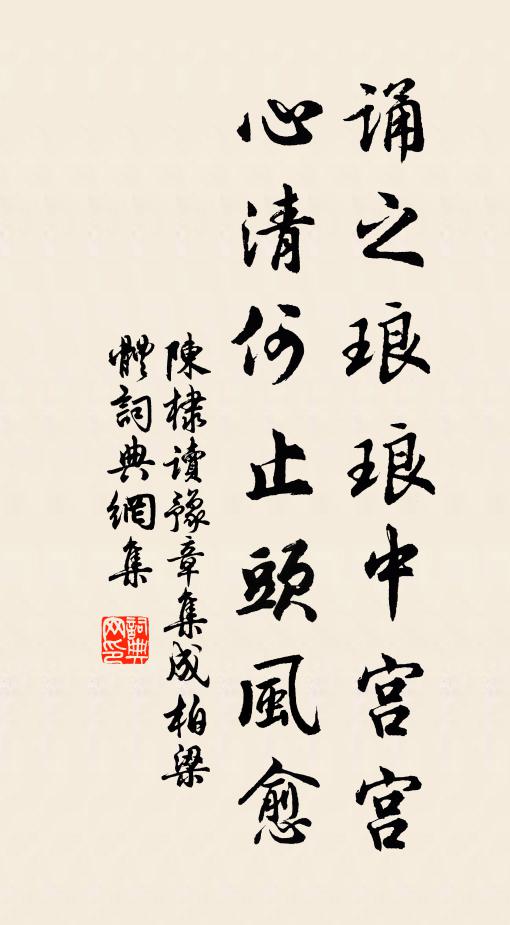 诵之琅琅中宫宫
心清何止头風愈
陳棣讀豫章集成柏梁
體詞典網集
詞典
网印